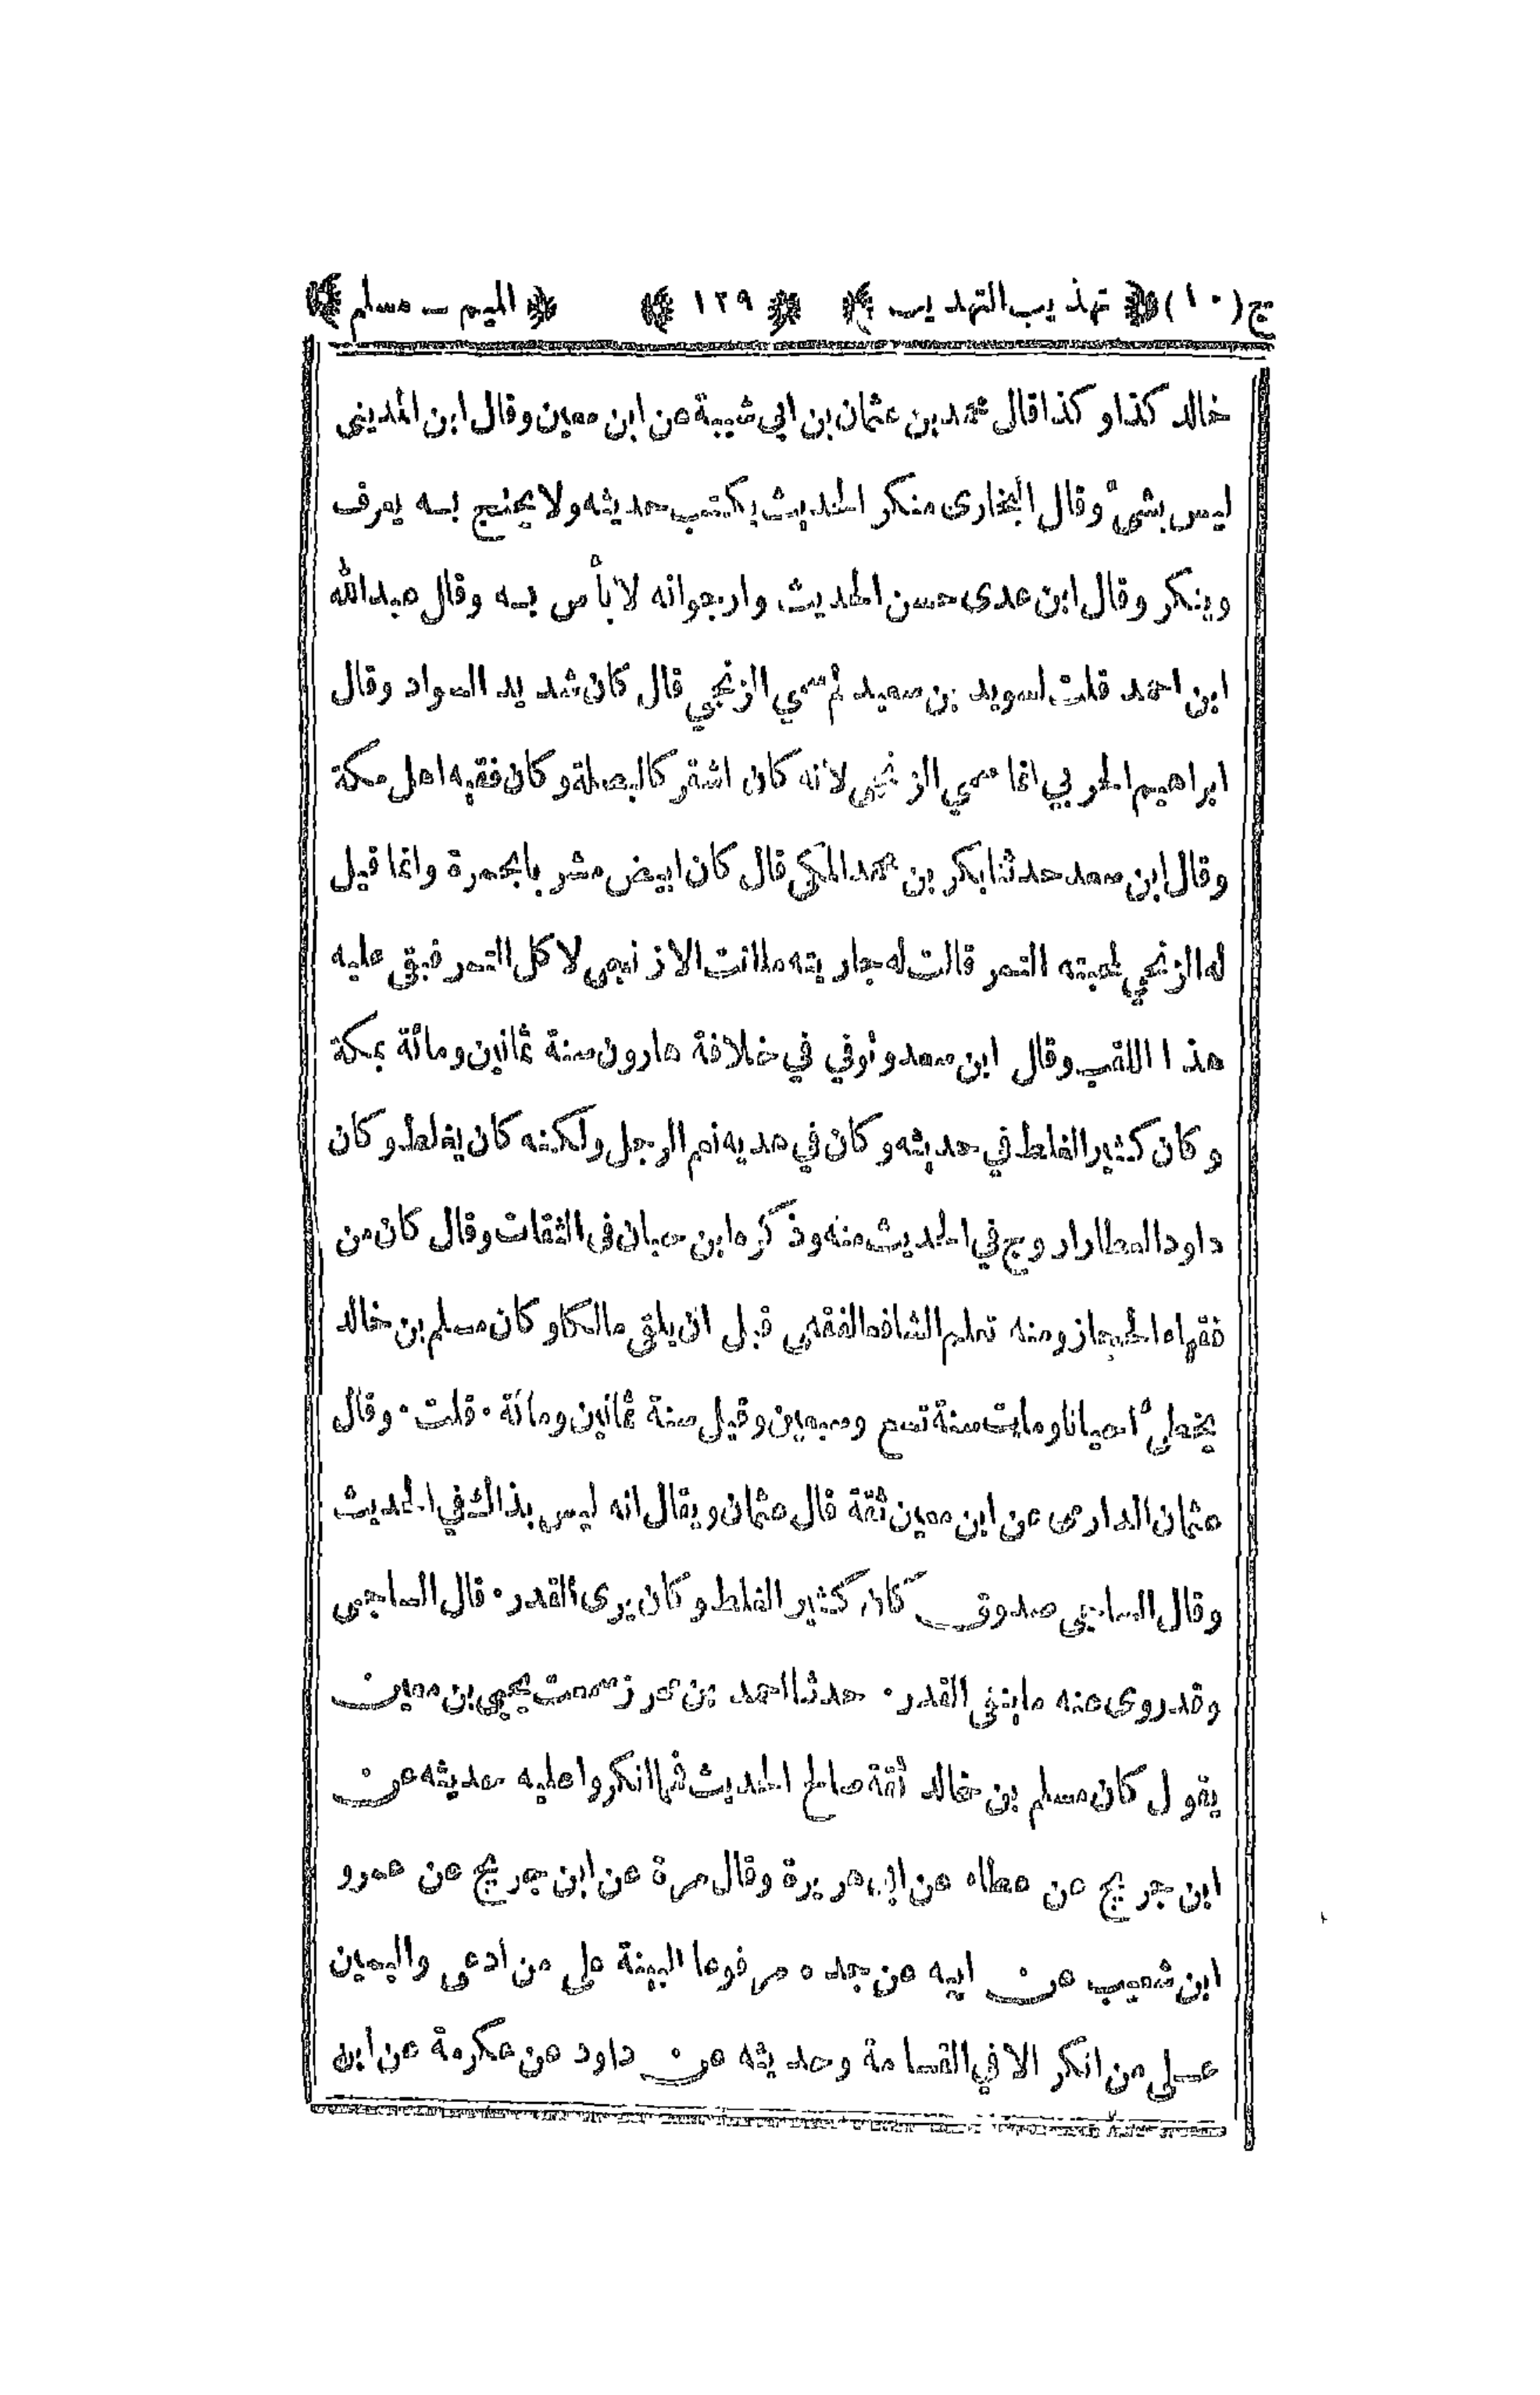 ج(١٠) تهذيب التهذيب ١٢٩ الميم - مسلم
خالد كذا وكذا قال محمد بن عثمان بن ابي شيبة عن ابن معين وقال ابن المديني
ليس بشئ وقال البخارى منكر الحديث يكتب حديثه ولا يحتج به يعرف
وينكر وقال ابن عدى حسن الحديث وارجو انه لا بأس به وقال عبدالله
ابن احمد قلت لسويد بن سعيد لم سمي الزنجي قال كان شديد السواد وقال
ابراهيم الحربي انما سمي الزنجي لانه كان اشقر كالبصلة وكان فقيه اهل مكة
وقال ابن سعد حدثنا بكر بن محمد المكي قال كان ابيض مشربا بحمرة وانما قيل
له الزنجي لمحبته التمر قالت له جاريته ما انت الا زنجي لاكل التمر فبقي عليه
هذا اللقب وقال ابن سعد وتوفي في خلافة هارون سنة ثمانين ومائة بمكة
وكان كثير الغلط في حديثه وكان في هديه نعم الرجل ولكنه كان يغلط وكان
داود العطار اروج في الحديث منه وذكره ابن حبان فى الثقات وقال كان من
فقهاء الحجاز ومنه تعلم الشافعي الفقه قبل ان يلقى مالكا وكان مسلم بن خالد
يخطئ احيانا ومات سنة تسع وسبعين وقيل سنة ثمانين ومائة ٠ قلت ٠ وقال
عثمان الدارمى عن ابن معين ثقة قال عثمان ويقال انه ليس بذاك في الحديث
وقال الساجي صدوق كان كثير الغلط وكان يرى القدر ٠ قال الساجى
وقد روى عنه ما ينفي القدر ٠ حدثنا احمد بن محرز سمعت يحيى بن معين
يقول كان مسلم بن خالد ثقة صالح الحديث فما انكروا عليه حديثه عن
ابن جريج عن عطاء عن ابى هريرة وقال مرة عن ابن جريج عن عمرو
ابن شعيب عن ابيه عن جده مرفوعا البينة على من ادعى واليمين
على من انكر الا في القسامة وحديثه عن داود عن عكرمة عن ابن